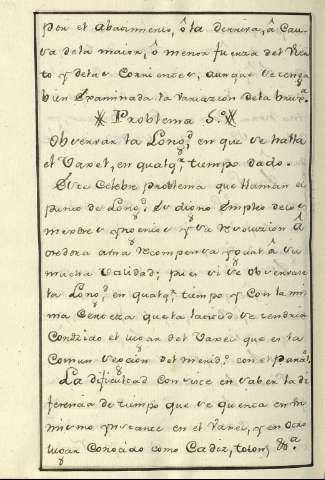 por el abatimiento, ô la derriva, â Cau-
sa de la maior, ô menor fuerza del Vien-
to y de las Corrientes, aunque se tenga
bien Examinada la Variazion de la bruxª.
Problema 5.º
Observar la Longd. en que se halla
el Vaxel, en qualqr. tiempo dado.
Este Celebre problema que llaman el
punto de Longd. Es digno Empleo de los
maiores y su resoluzion â
creedora a una recompensa ygual â su
mucha Utilidad; pues si se observase
la Longd. en qualqr. tiempo y Con la mis-
ma Certeza que la latitud se tendria
Conozido el lugar del Vaxel que es la
Comun seccion del merid.º con el paral.
La dificultad Consiste en saber la di-
ferenzia de tiempo que se quenta en un
mismo ynstante en el Vaxel, y en otro
lugar Conozido como Cadiz, tolon, &ª.